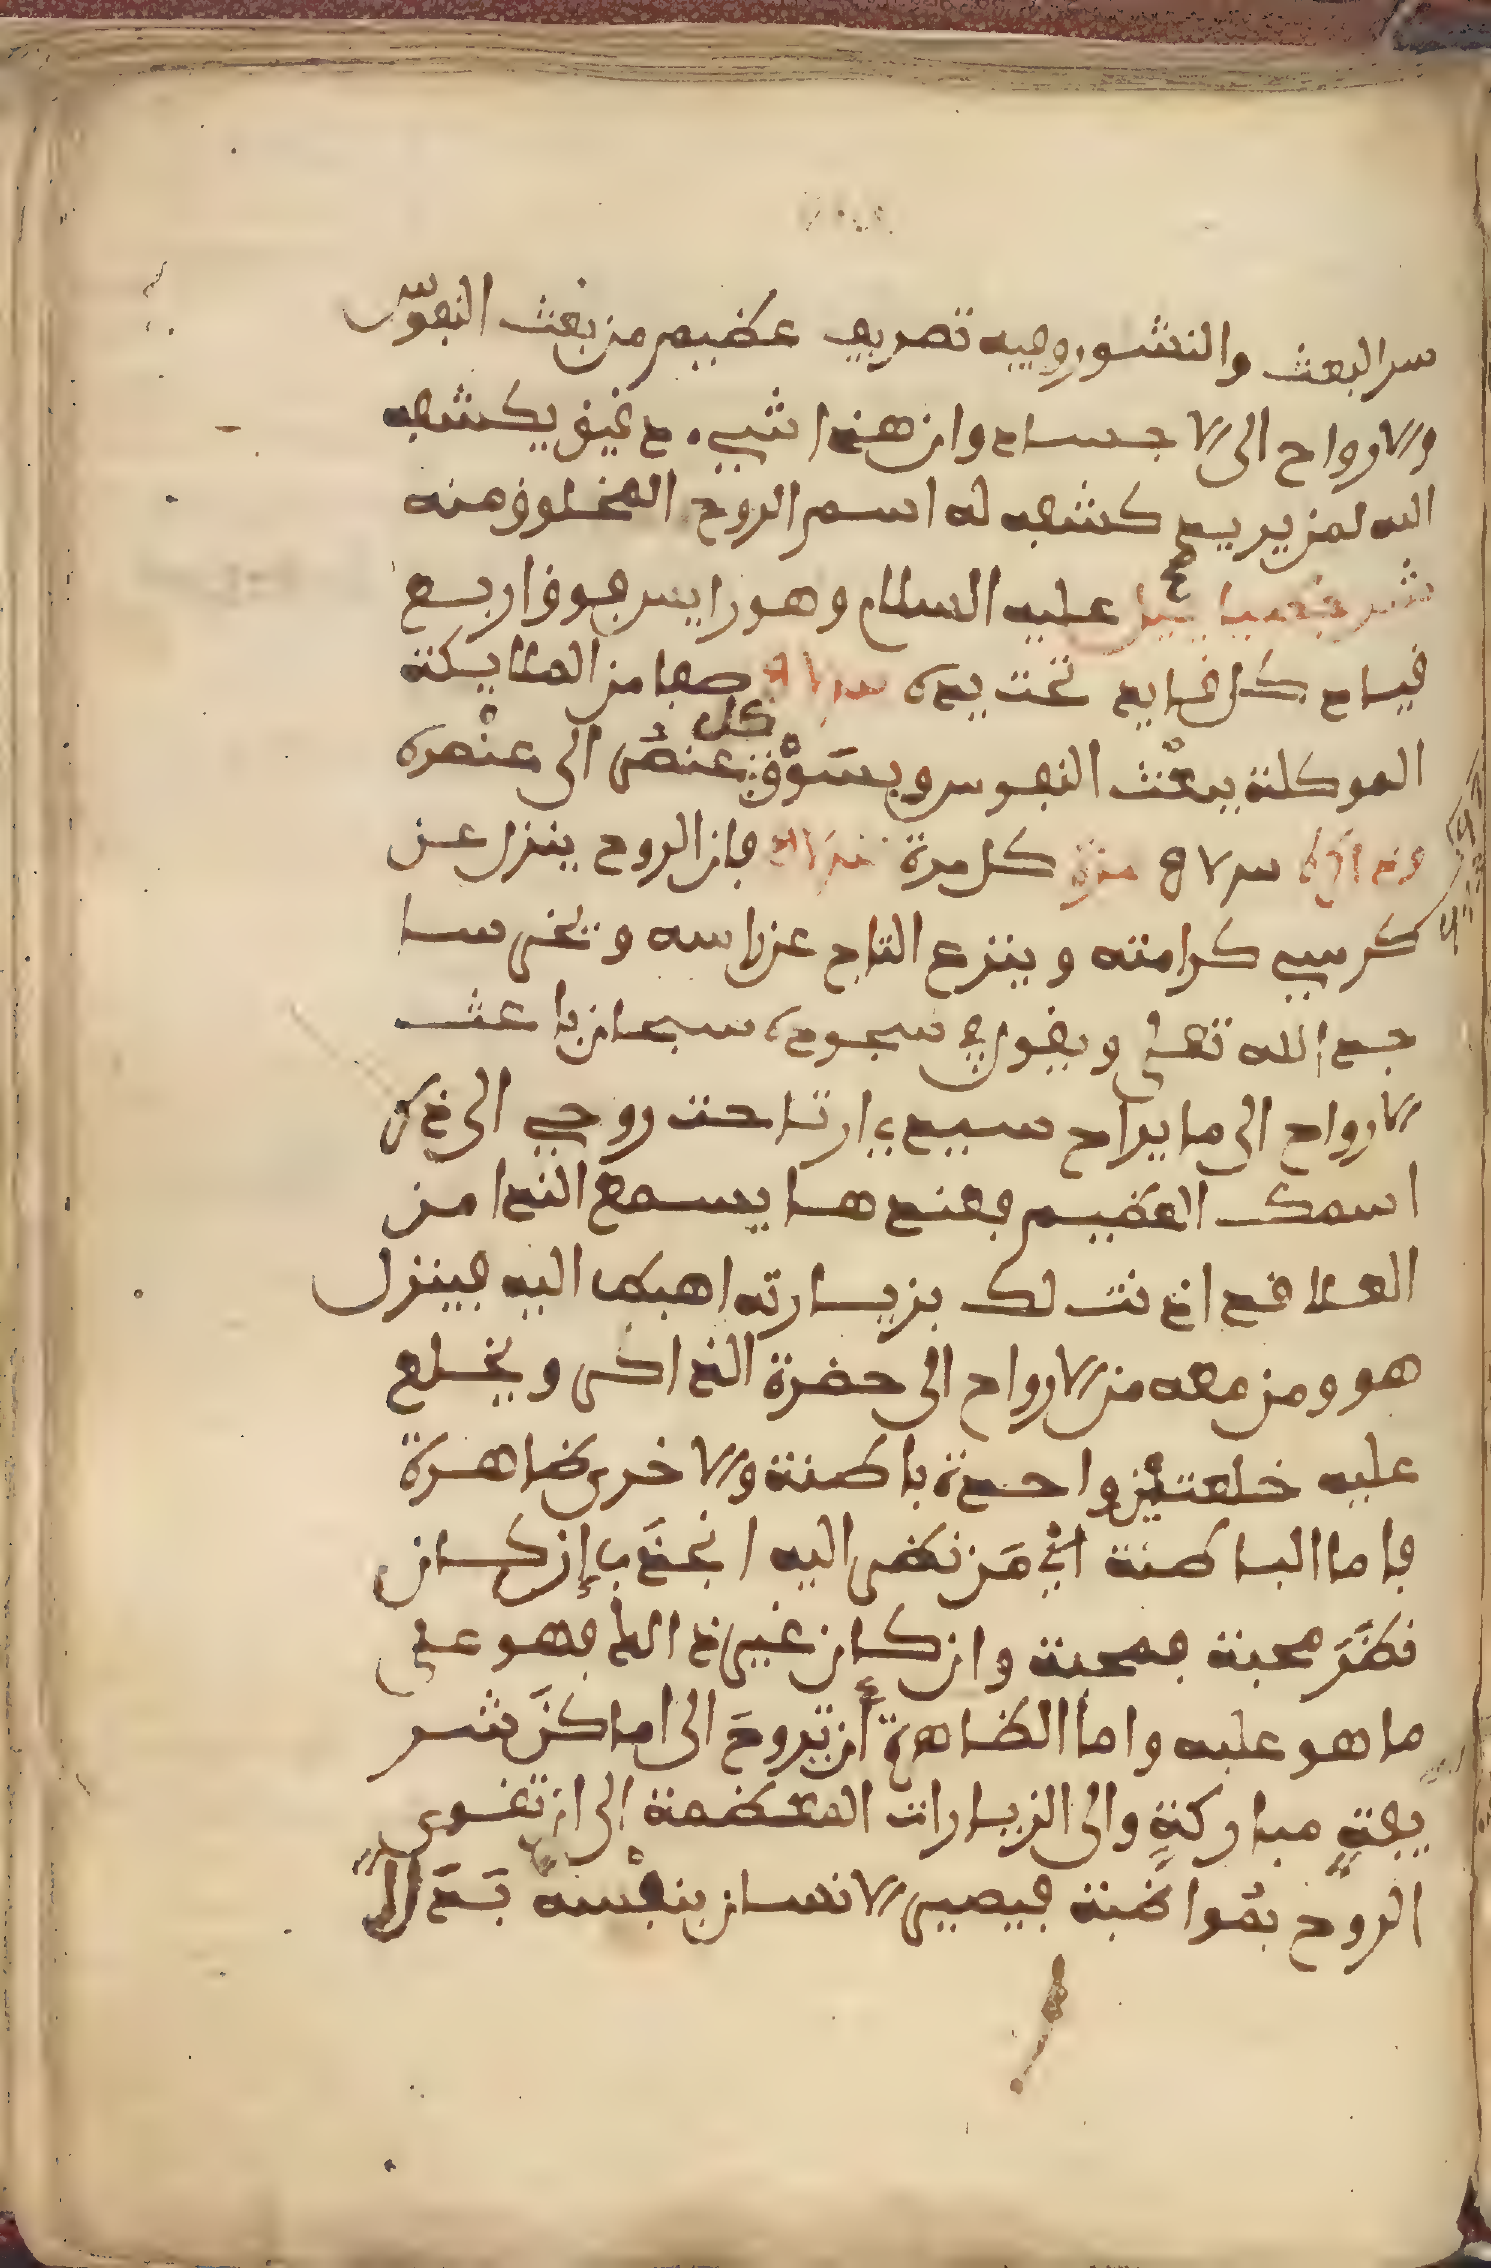 سر البعث والنشور وفيه تصريف عظيم من بعث النفوس
والارواح الى الاجساد وان هذا شيء دقيق يكشفه
الله لمن يريد كشف له اسم الروح المخلوق منه
عليه السلام وهو رايس فوق اربع
قياد كل قايد تحت يده صفا من الملايكة
الموكلة ببعث النفوس وبسوق كل عنصر الى عنصره
كل مرة فان الروح ينزل عن
كرسي كرامته وينزع التاج عن راسه وتخر سا
جد الله تعلى ويقول في سجوده سبحان باعث
الارواح الى ما يراح سيدي ارتاحت روحي الى ذكر
اسمك العظيم فعندها يسمع الندا من
العلا قد اذنت لك بزيارته اهبط اليه فينزل
هو ومن معه من الارواح الى حضرة الذاكر ويخلع
عليه خلعتين واحدة باطنة والاخرى ظاهرة
فاما الباطنة اي من نظر اليه انجذب إن كان
نظر محبة فمحبة وان كان غير ذالك فهو على
ما هو عليه واما الظاهرة أن تروح الى اماكن شر
يفة مباركة والى الزيارات المعظمة الى ان تقوى
الروح بمواظبة فيصير الانسان بنفسه